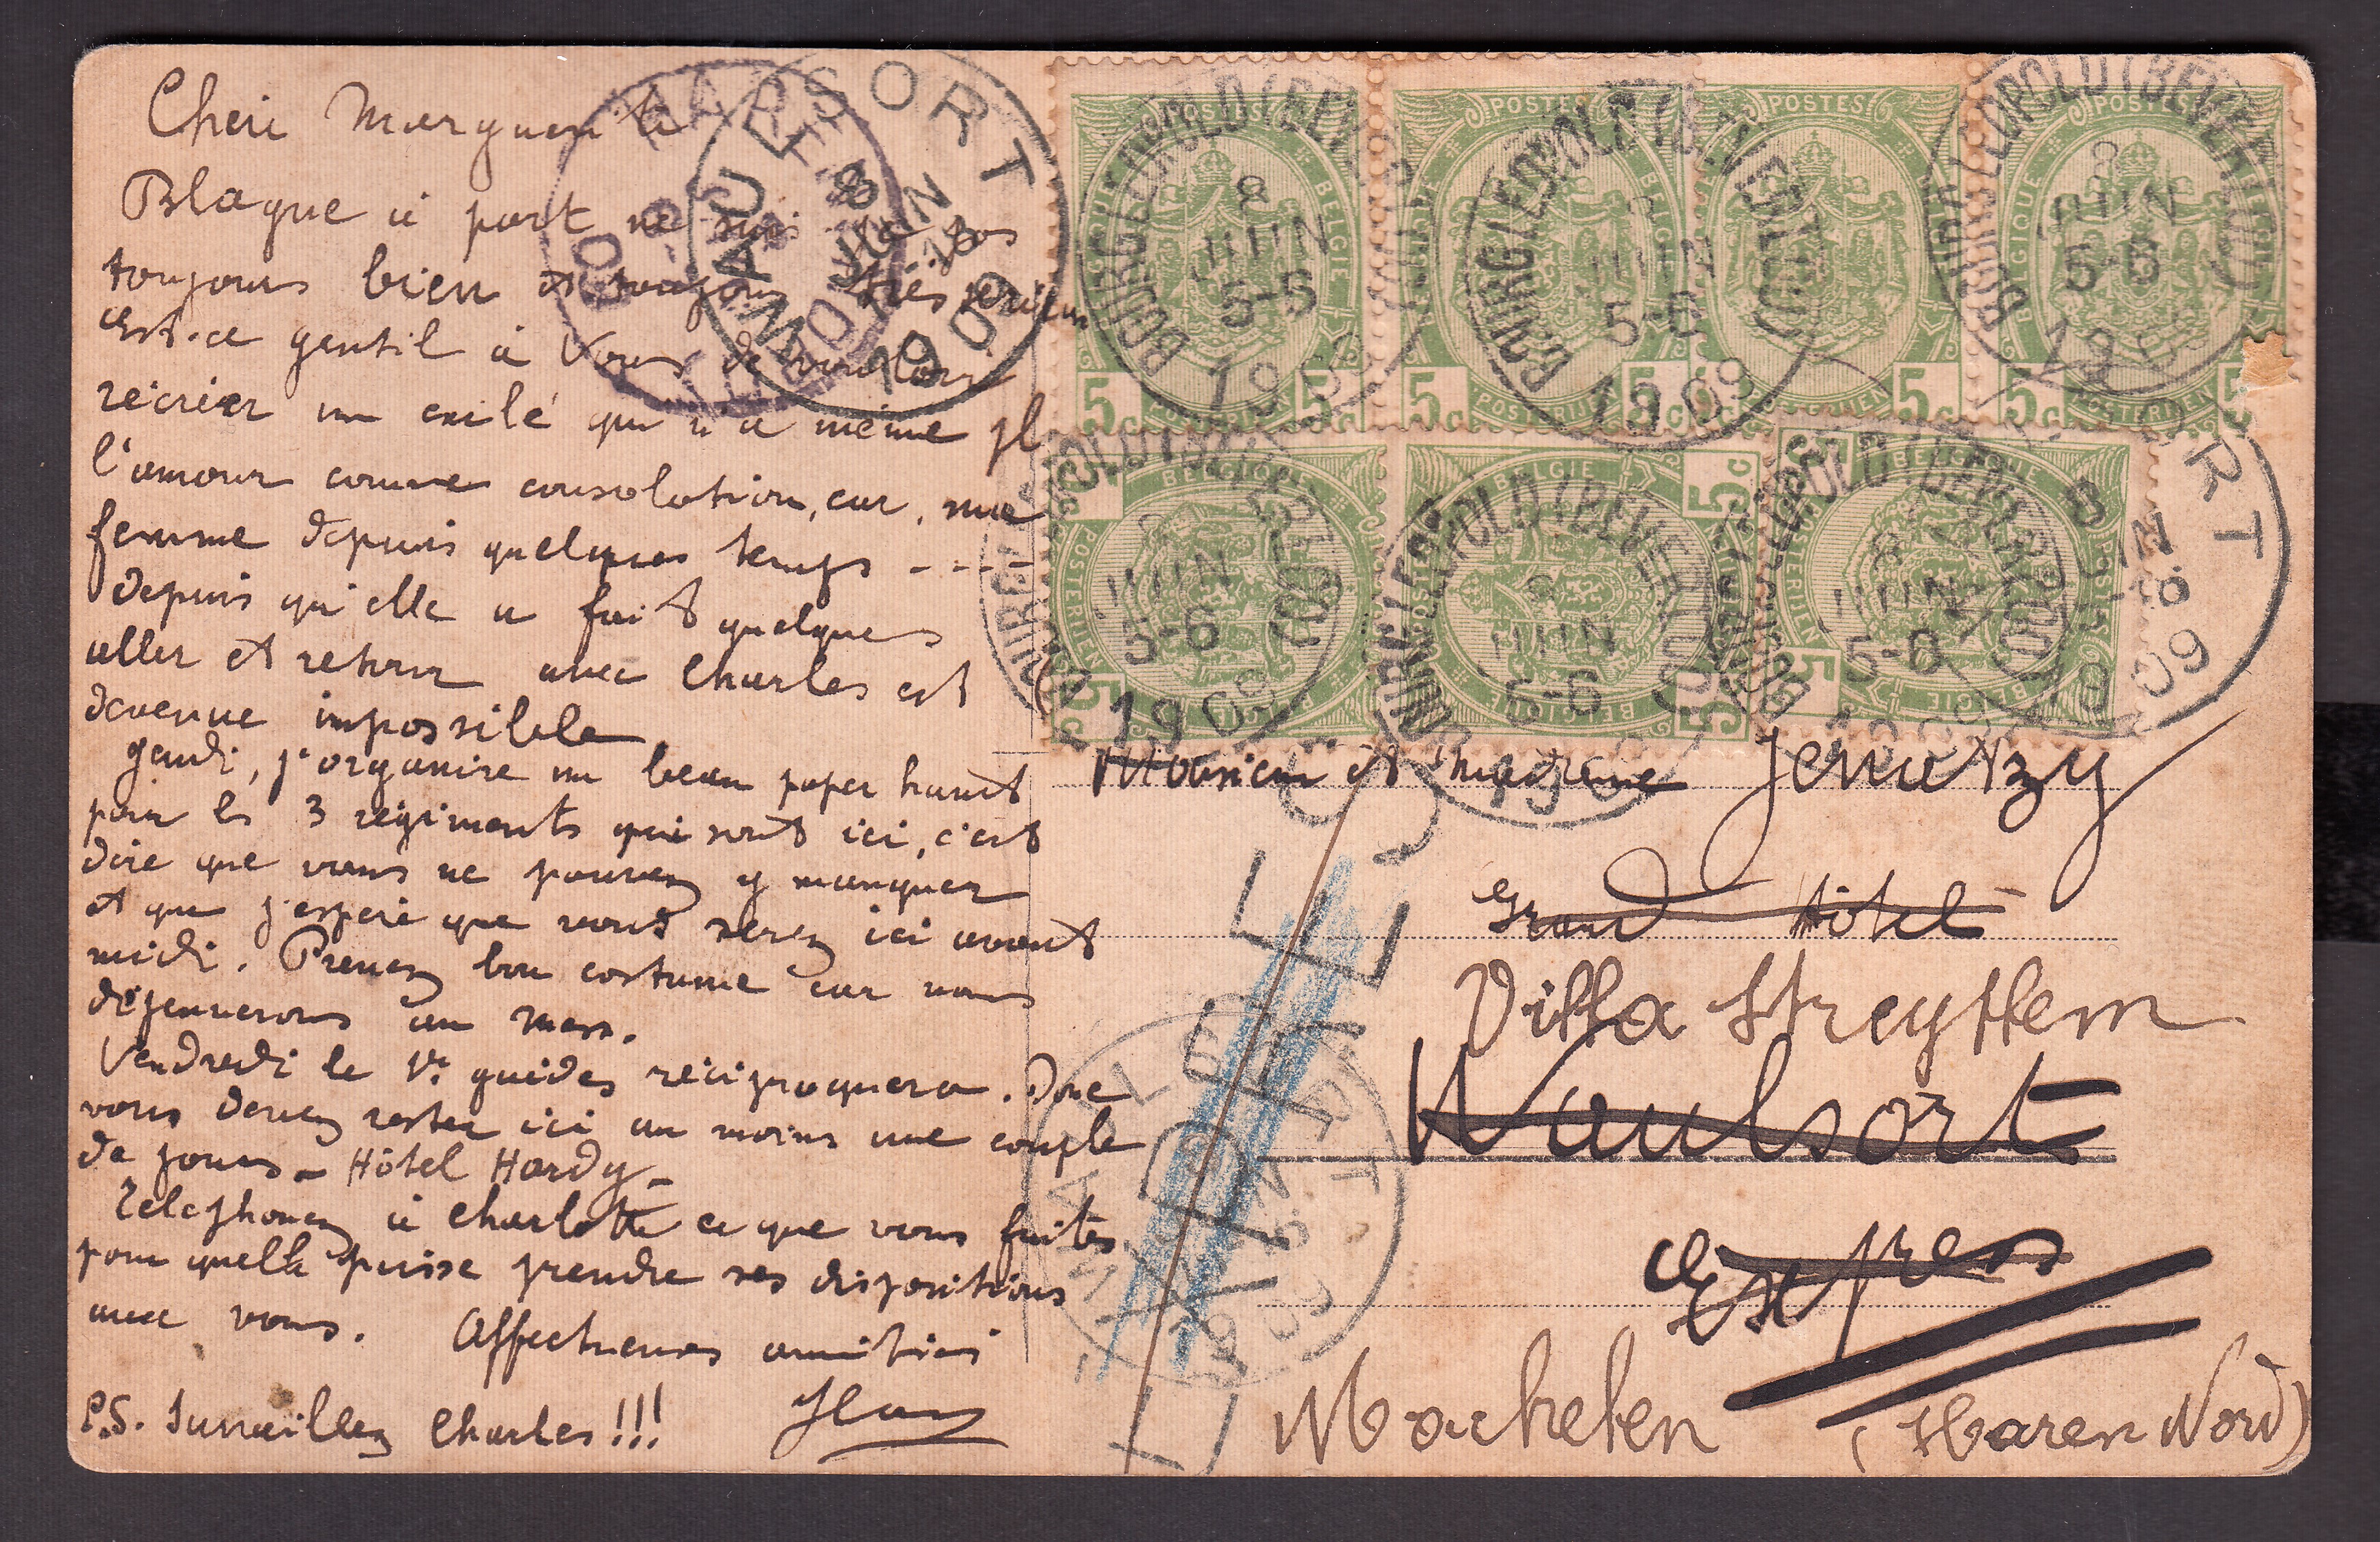 Cheri Marguerite
Blague à part ne suis-je pas
toujours bien et toujours très sérieux
Est-ce gentil à Vous de vouloir
récréer un exilé qui n'a même pl
l'amour comme consolation, car, ma
femme depuis quelques temps - - - -
depuis qu'elle a fait quelques
aller et retour avec Charles est
devenue impossible
Jeudi, j'organise un beau paper hunt
pour les 3 régiments qui sont ici, c'est
dire que vous ne pouvez y manquer
et que j'espère que vous serez ici avant
midi. Prenez bon costume car nous
déjeunerons au mess.
Vendredi le 1r guides réciproquera. Donc
vous devez rester ici au moins une couple
de jours - Hôtel Hardy -
Telephonez à Charlotte ce que vous faites
pour quelle puisse prendre ses dispositions
avec vous. Affectueuses amitiés
P.S. Surveillez Charles!!!
WAULSORT
8 JUIN
1909
HAREN
BOURG-LEOPOLD (BEVERLOO)
8 JUIN 5-6 1909
POSTES
BELGIQUE
BELGIE
POSTERIJEN
5c
Monsieur et Madame Jenatzy
Grand Hôtel
Villa
Waulsort
Express
Machelen (Haren Nord)
WAULSORT